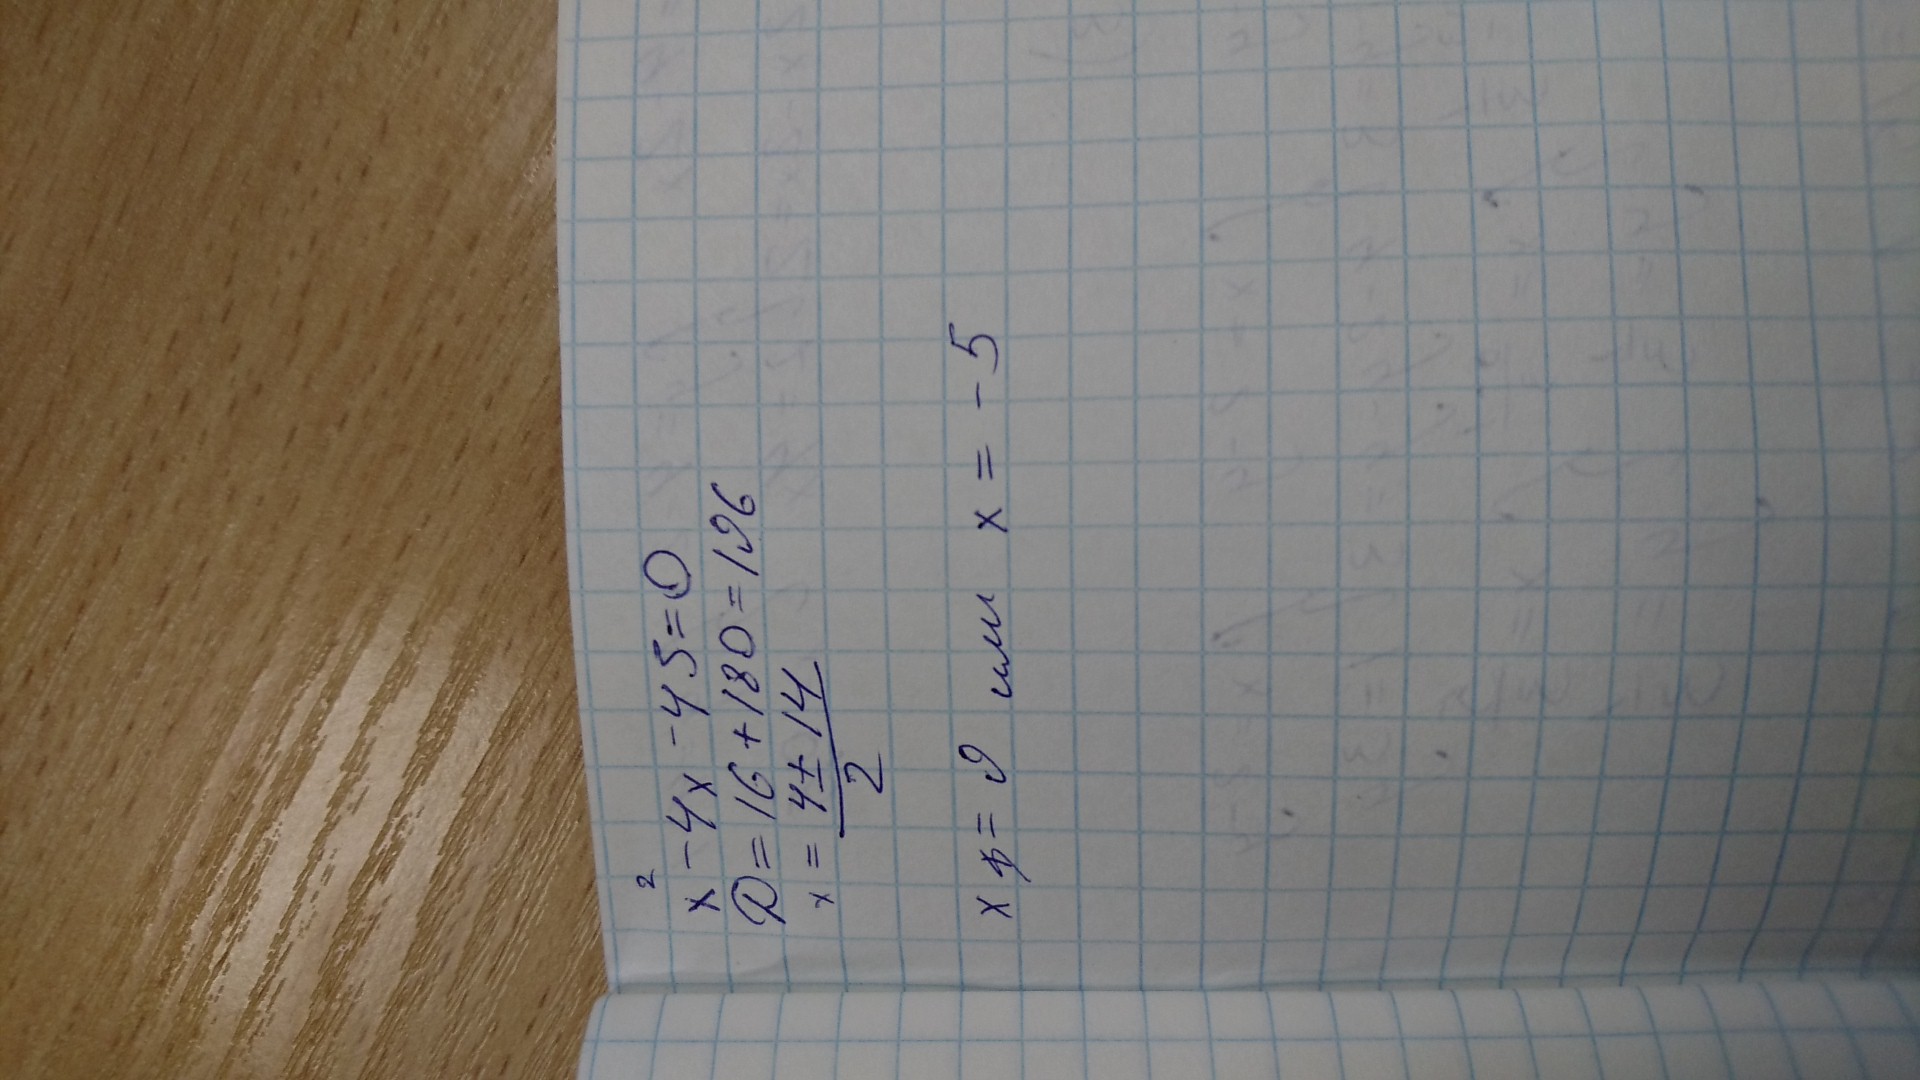 x² - 4x - 45 = 0
D = 16 + 180 = 196
x = (4 ± 14) / 2
x = 9 или x = -5